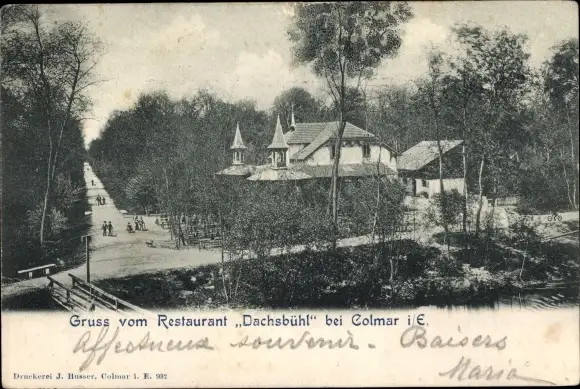 Gruss vom Restaurant „Dachsbühl" bei Colmar i/E.
Affectueux souvenir. Baisers
Maria
Druckerei J. Husser, Colmar i. E. 932